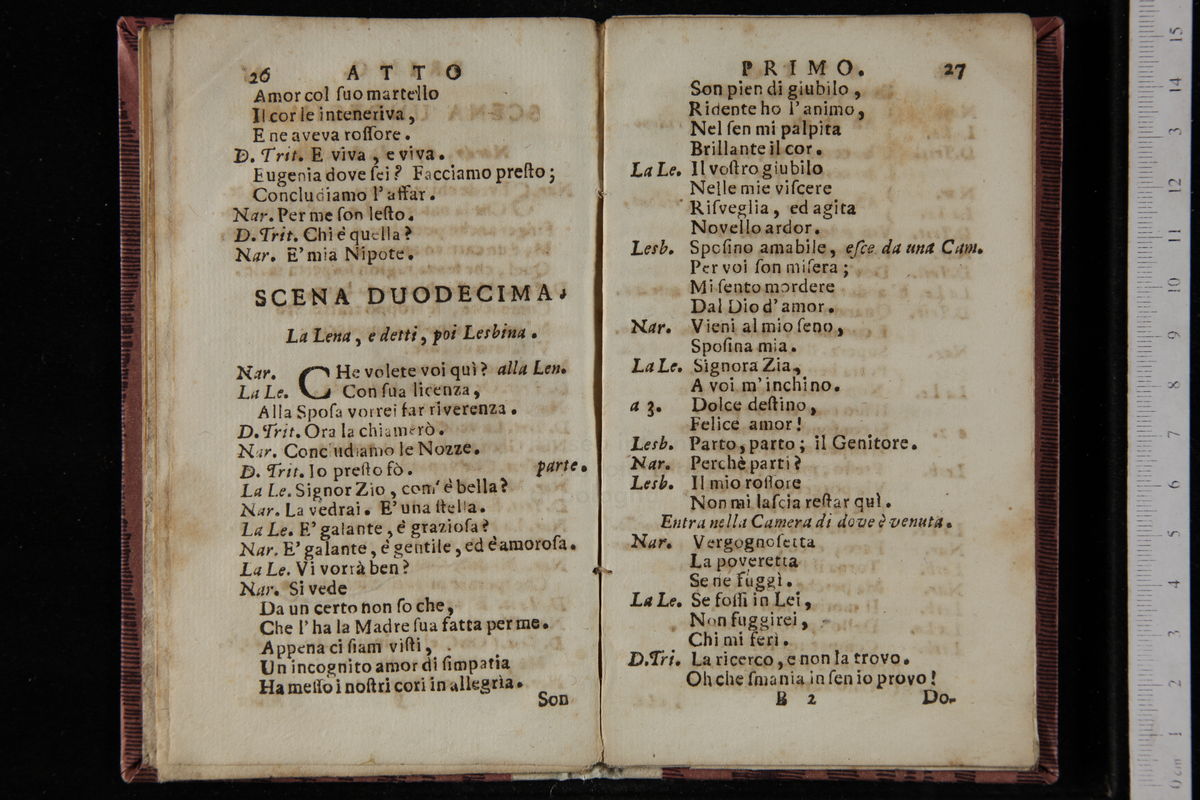 26 ATTO
Amor col ſuo martello
Il cor le inteneriva,
E ne aveva roſſore.
D. Trit. E viva, e viva.
Eugenia dove ſei? Facciamo preſto;
Concludiamo l'affar.
Nar. Per me ſon leſto.
D. Trit. Chi è quella?
Nar. E' mia Nipote.
SCENA DUODECIMA.
La Lena, e detti, poi Lesbina.
Nar. CHe volete voi quì? alla Len.
La Le. Con ſua licenza,
Alla Spoſa vorrei far riverenza.
D. Trit. Ora la chiamerò.
Nar. Concludiamo le Nozze.
D. Trit. Io preſto fò. parte.
La Le. Signor Zio, com' è bella?
Nar. La vedrai. E' una ſtella.
La Le. E' galante, é grazioſa?
Nar. E' galante, é gentile, ed é amoroſa.
La Le. Vi vorrà ben?
Nar. Si vede
Da un certo non ſo che,
Che l'ha la Madre ſua fatta per me.
Appena ci ſiam viſti,
Un incognito amor di ſimpatia
Ha meſſo i noſtri cori in allegrìa.
Son
PRIMO. 27
Son pien di giubilo,
Ridente ho l'animo,
Nel ſen mi palpita
Brillante il cor.
La Le. Il voſtro giubilo
Nelle mie viſcere
Riſveglia, ed agita
Novello ardor.
Lesb. Spoſino amabile, eſce da una Cam.
Per voi ſon miſera;
Mi ſento mordere
Dal Dio d'amor.
Nar. Vieni al mio ſeno,
Spoſina mia.
La Le. Signora Zia,
A voi m'inchino.
a 3. Dolce deſtino,
Felice amor!
Lesb. Parto, parto; il Genitore.
Nar. Perchè parti?
Lesb. Il mio roſſore
Non mi laſcia reſtar quì.
Entra nella Camera di dove è venuta.
Nar. Vergognoſetta
La poveretta
Se ne fuggì.
La Le. Se foſſi in Lei,
Non fuggirei,
Chi mi ferì.
D. Tri. La ricerco, e non la trovo.
Oh che ſmania in ſen io provo!
B 2 Do-
15
14
13
12
11
10
9
8
7
6
5
4
3
2
1
0 cm